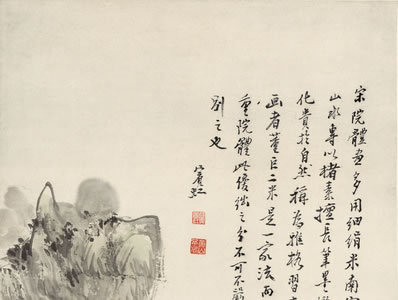 宋院體畫多用細絹米南宮
山水專以楮素擅長筆墨
化貴於自然稱為雅格習
画者董巨二米是一家法而
重院體此優絀之分不可不
別之也
賓虹